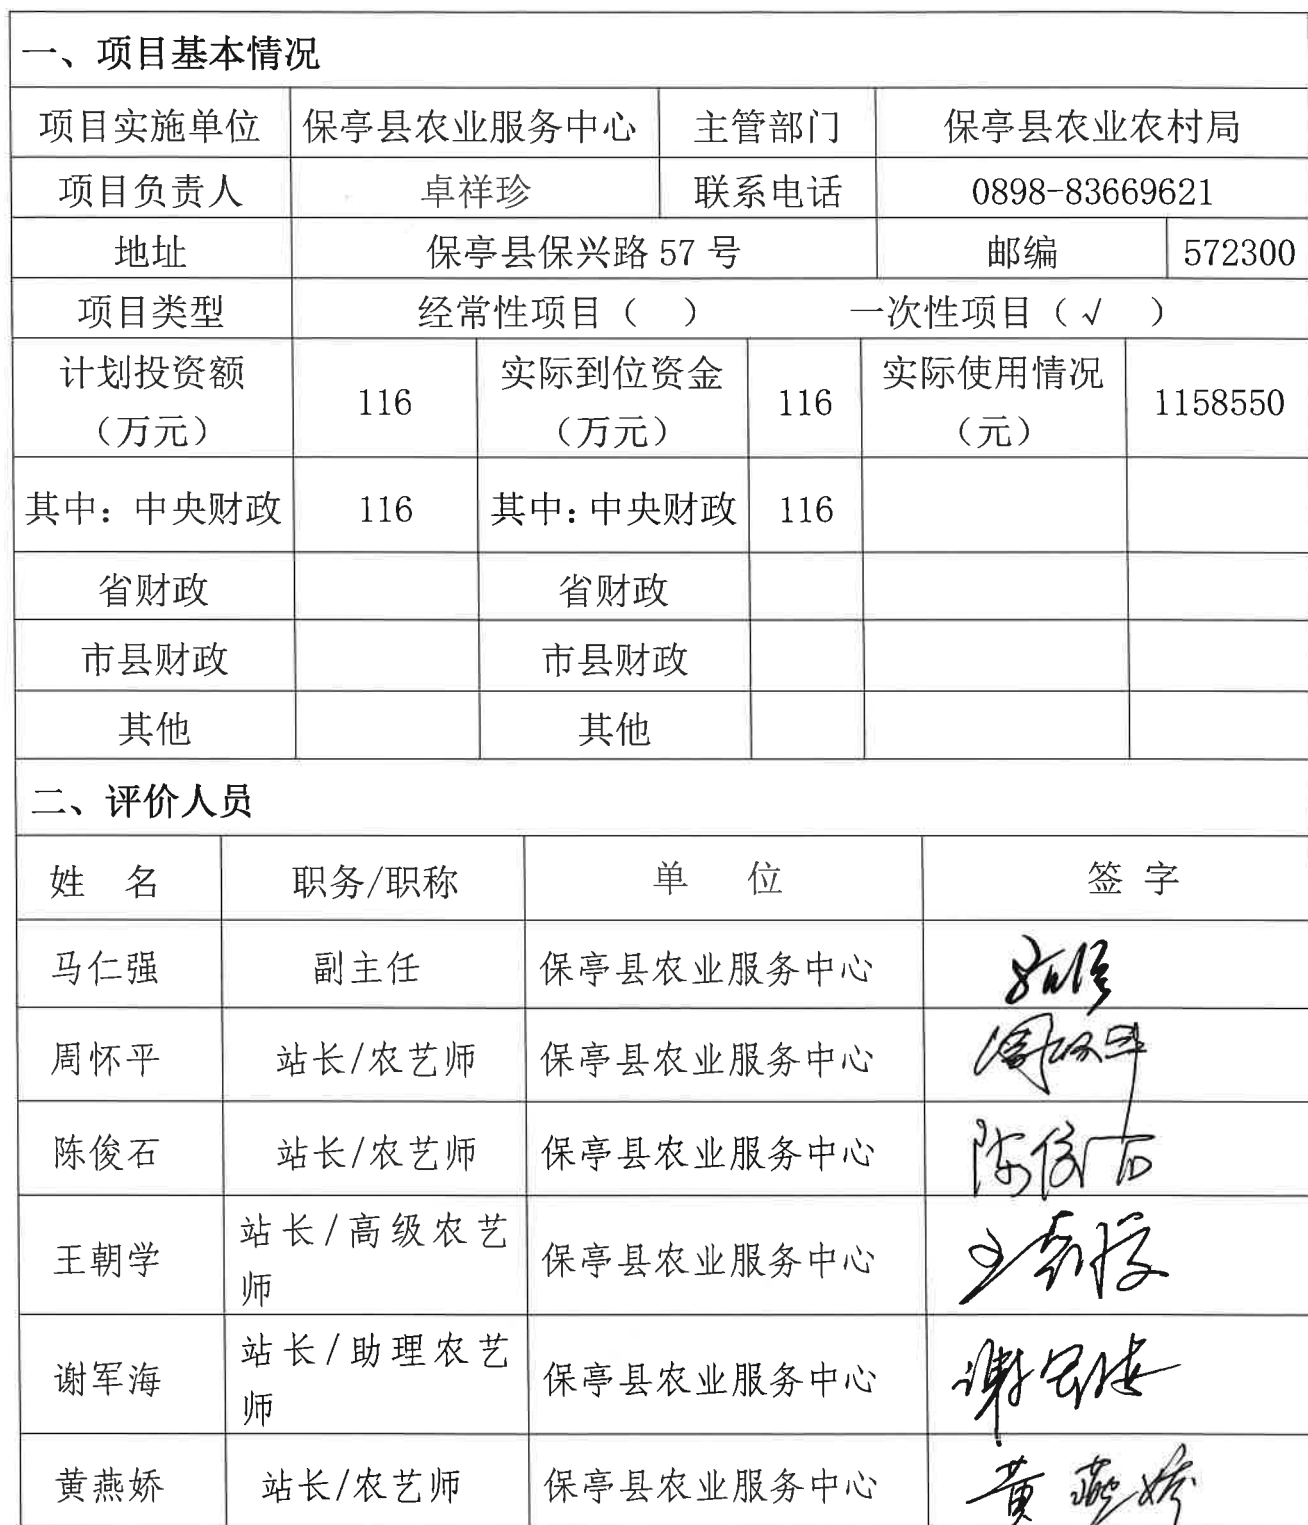 一、项目基本情况
项目实施单位 保亭县农业服务中心 主管部门 保亭县农业农村局
项目负责人 卓祥珍 联系电话 0898-83669621
地址 保亭县保兴路 57 号 邮编 572300
项目类型 经常性项目（ ） 一次性项目（√ ）
计划投资额
（万元） 116 实际到位资金
（万元） 116 实际使用情况
（元） 1158550
其中：中央财政 116 其中：中央财政 116
省财政 省财政
市县财政 市县财政
其他 其他
二、评价人员
姓 名 职务/职称 单 位 签 字
马仁强 副主任 保亭县农业服务中心
周怀平 站长/农艺师 保亭县农业服务中心 周怀平
陈俊石 站长/农艺师 保亭县农业服务中心 陈俊石
王朝学 站长/高级农艺
师 保亭县农业服务中心
谢军海 站长/助理农艺
师 保亭县农业服务中心 谢军海
黄燕娇 站长/农艺师 保亭县农业服务中心 黄燕娇